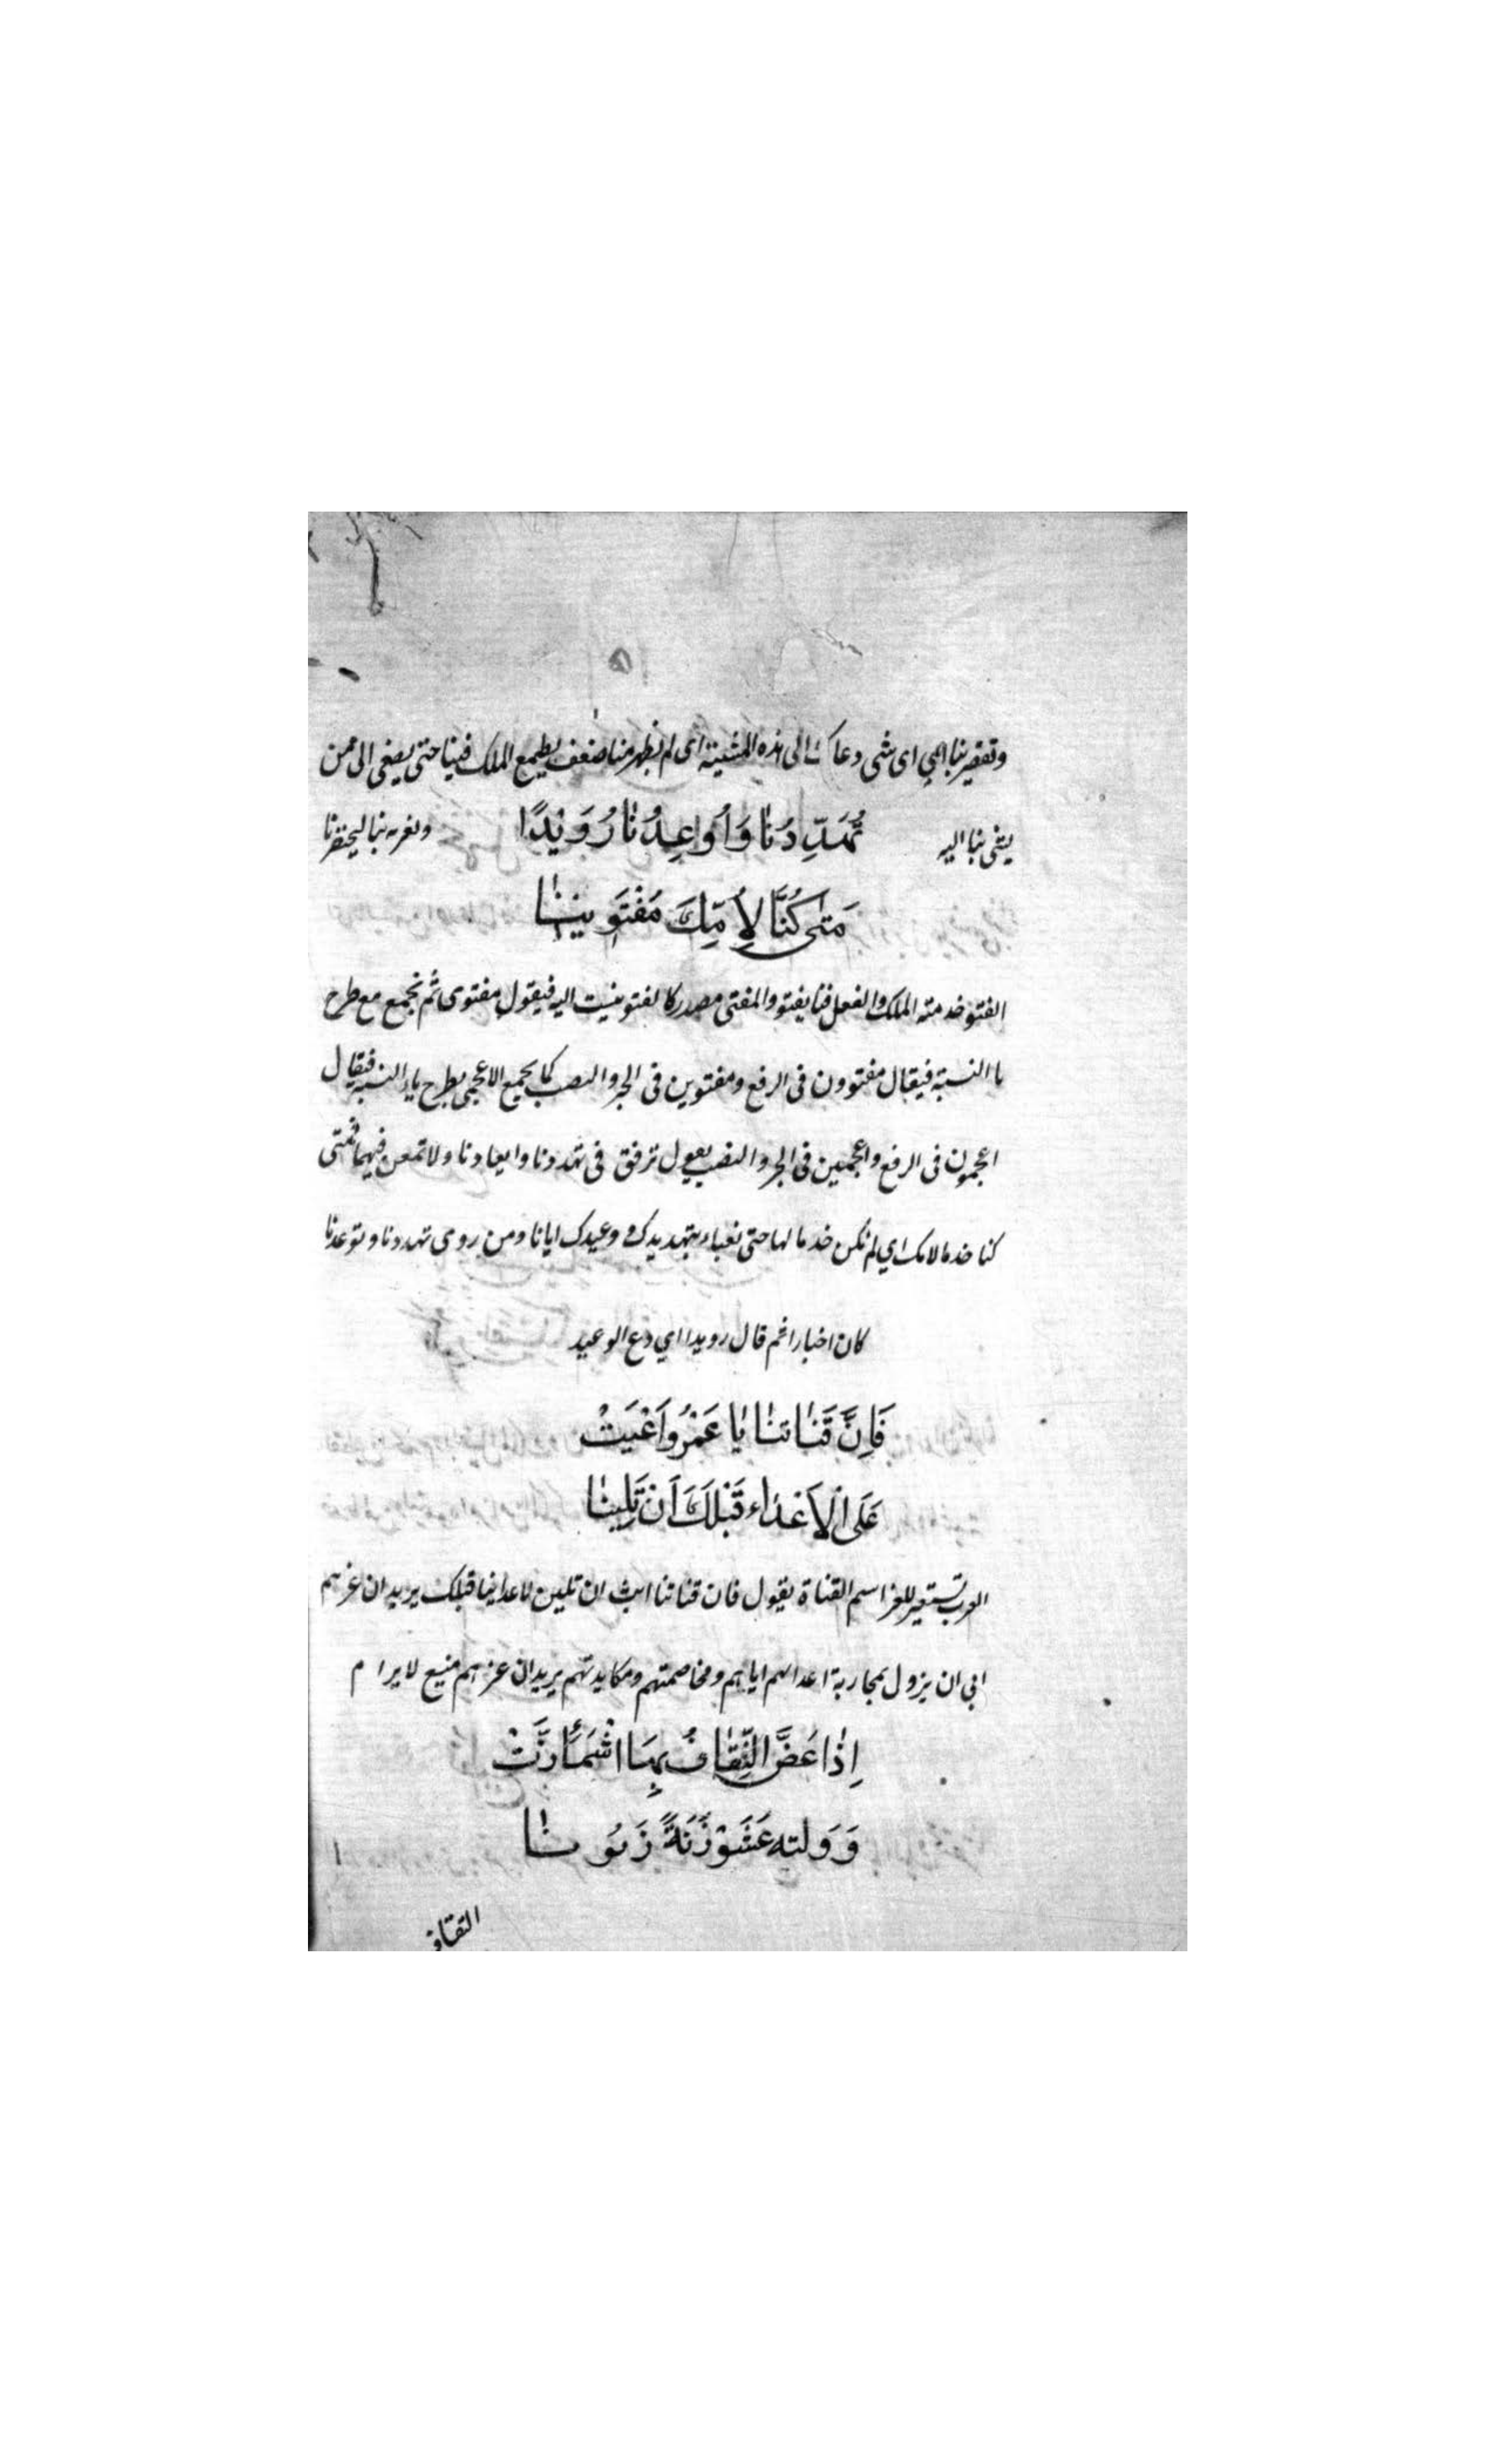 وتقصر بنا اي اى شى دعاك الى هذه المشية اى لم يظهر منا ضعف يطمع الملك فينا حتى يصغى الى من
يشى بنا اليه تُهَدِّدُنَا وَاُوعِدُنَا رُوَيْدًا ويغريه بنا ليحتقرنا
مَتٰى كُنَّا لِاُمِّكَ مَقْتَوِينَا
القتو خدمته الملك والفعل قتا يقتو والمقتى مصدر كالقتو ينسب اليه فيقول مقتوى ثم تجمع مع طرح
يا النسبة فيقال مقتوون فى الرفع ومقتوين فى الجر والنصب كما يجمع الاعجمى بطرح ياء النسبة فيقال
اعجمون فى الرفع واعجمين فى الجر والنصب يقول ترفق فى تهددنا وايعادنا ولا تمعن فيهما فمتى
كنا خدما لامك اي لم نكن خدما لها حتى نعباء بتهديدك ووعيدك ايانا ومن روى تهددنا وتوعدنا
كان اخبارا ثم قال رويدا اي دع الوعيد
فَاِنَّ قَنَاتنَا يَا عَمْرُو اَعْيَتْ
عَلَى الْاَعْدَاء قَبْلَكَ اَنْ تَلِينَا
العرب تستعير للعز اسم القناة يقول فان قناتنا ابت ان تلين لاعداينا قبلك يريد ان عزهم
ابى ان يزول بمحاربة اعدائهم اياهم ومخاصمتهم ومكايدتهم يريد ان عزهم منيع لا يرام
اِذَا عَضَّ الثِّقَافُ بِهَا اشْمَأَزَّتْ
وَوَلته عَشَوْزَنَةً زَبُونَا
الثقاف